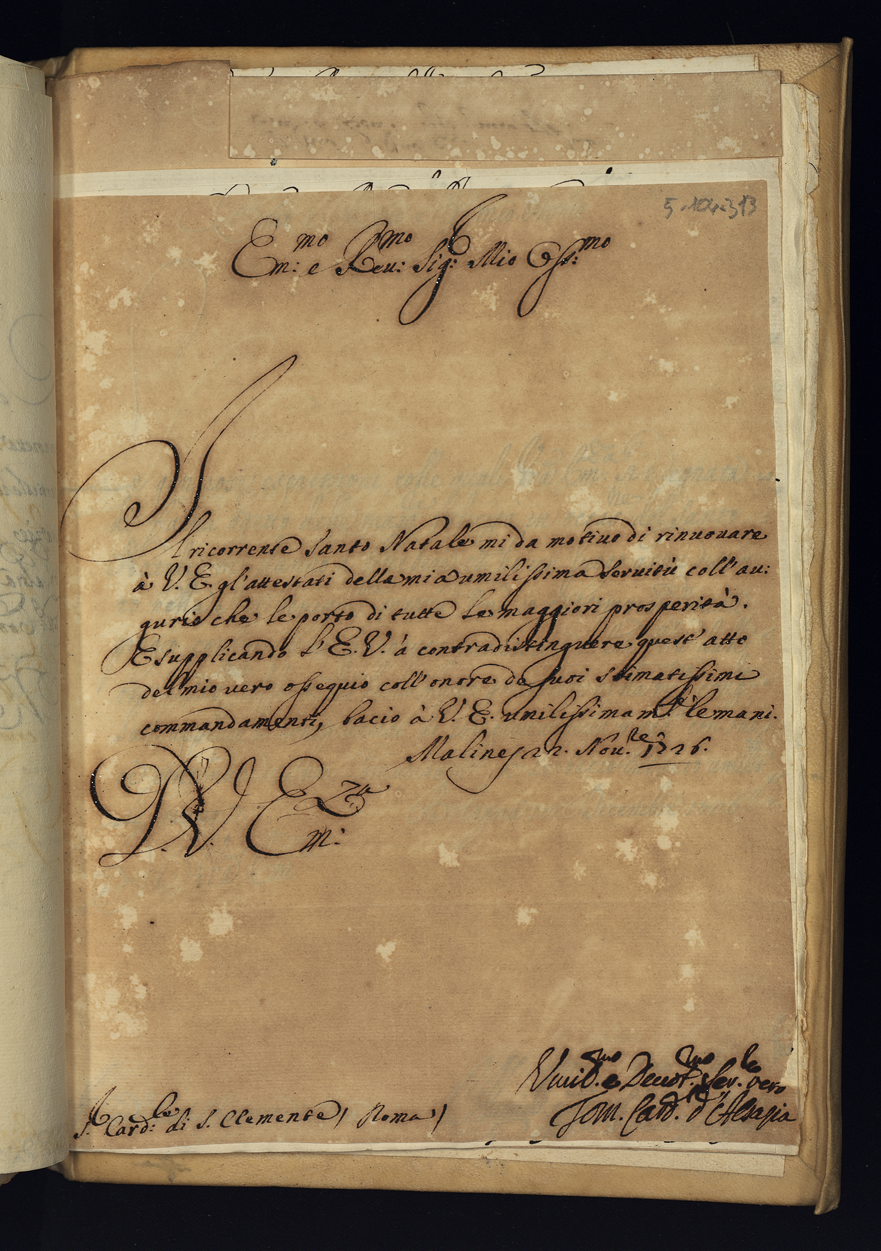 5-104-313
Em:mo e Reu:mo Sig: Mio Oss:mo
Il ricorrente Santo Natale mi da motiuo di rinuouare
à V. E. gl'attestati della mia umilissima seruitù coll'au:
gurio che le porto di tutte le maggiori prosperità.
E supplicando l'E. V. à contradistinguere quest'atto
del mio vero ossequio coll'onore de suoi stimatissimi
commandamenti, bacio à V. E. umilissimam.te le mani.
Malines 22. Nou.re 1726.
D. V. Em:za
Umid.mo e Deuot.mo Ser.le vero
Tom. Card. d'Alsazia
S.r Card:le di S. Clemente / Roma /